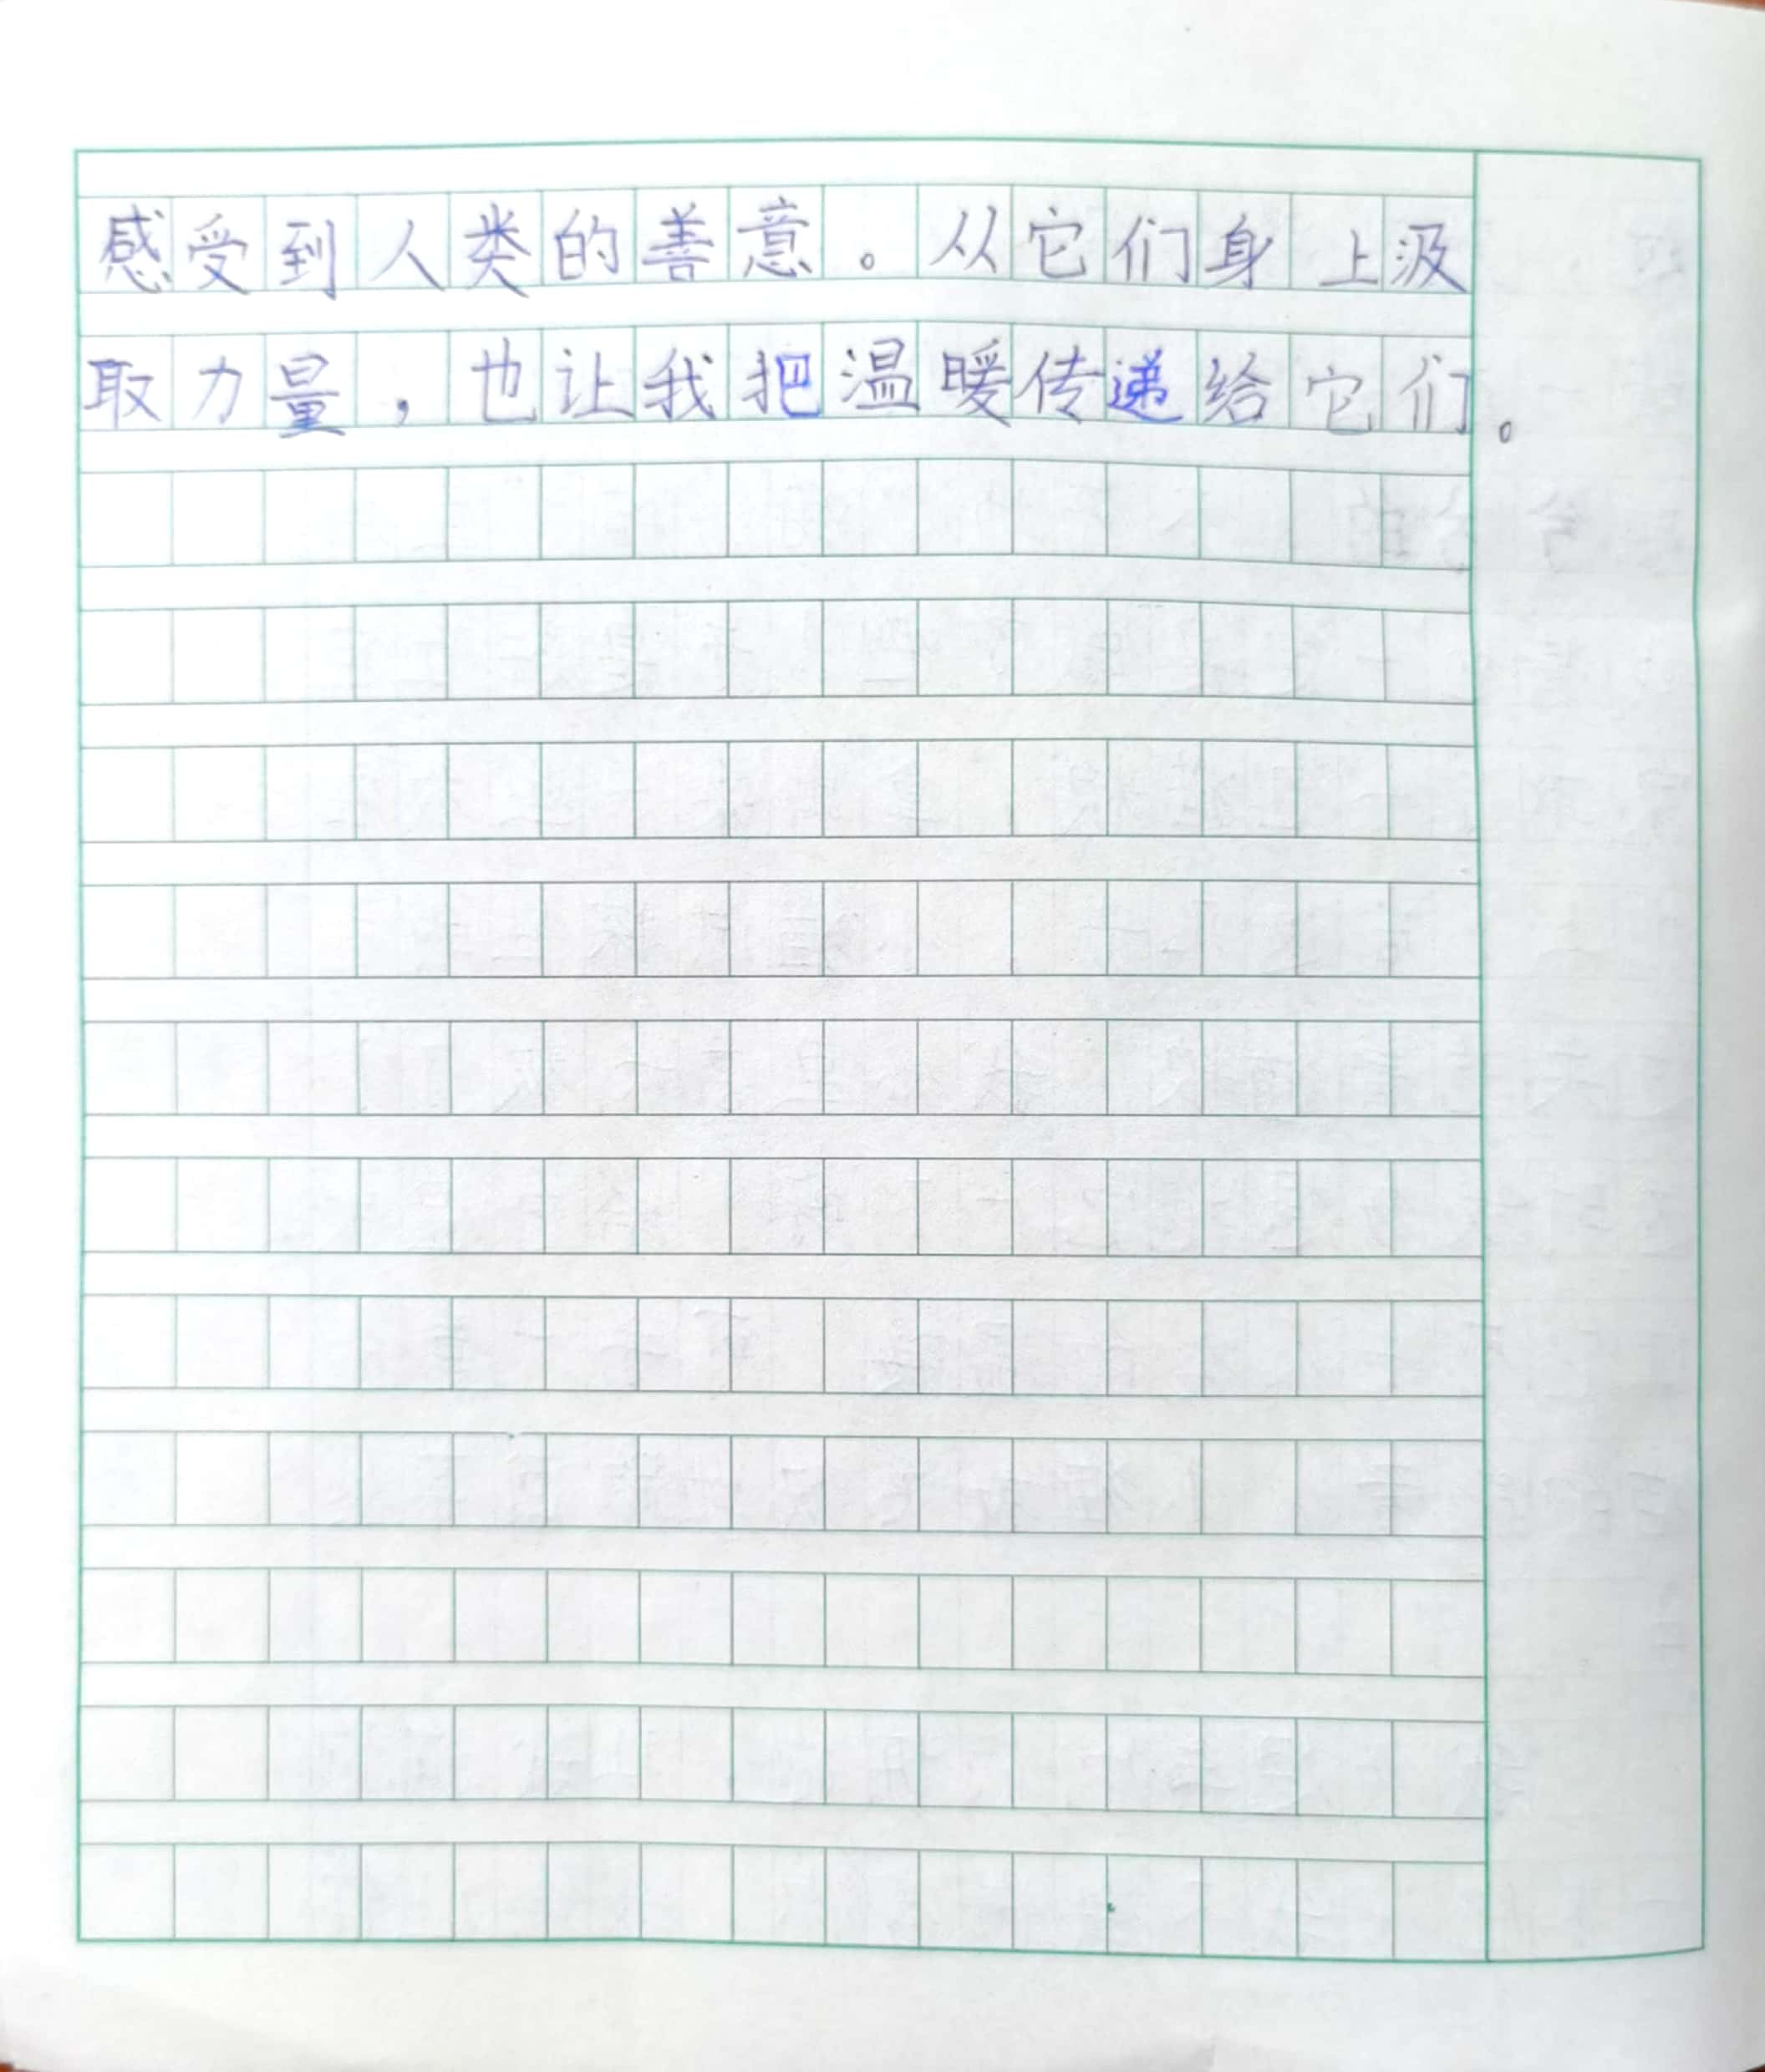 感受到人类的善意。从它们身上汲
取力量，也让我把温暖传递给它们。